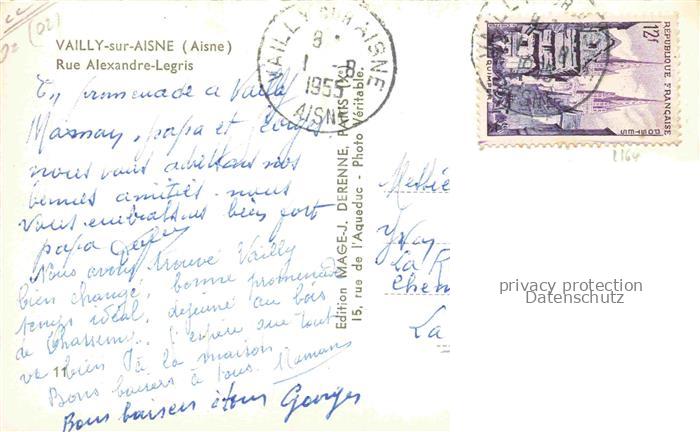 (02)
VAILLY-sur-AISNE (Aisne)
Rue Alexandre-Legris
En promenade a Vailly
Maman, papa et Georges
nous vous adressons nos
bonnes amitiés. nous
vous embrassons bien fort
papa
Nous avons trouvé Vailly
bien changé, bonne promenade
temps idéal, déjeuné au bois
de Chassemy, j'espère que tout
va bien à la maison
Bons baisers à tous. Maman
11
Bons baisers à tous Georges
Edition MAGE-J. DERENNE, PARIS
15, rue de l'Aqueduc - Photo Véritable.
VAILLY SUR AISNE
8
1 - 8
1955
AISNE
12f
REPUBLIQUE FRANÇAISE
POSTES
QUIMPER
2164
La R
Chem
La
privacy protection
Datenschutz